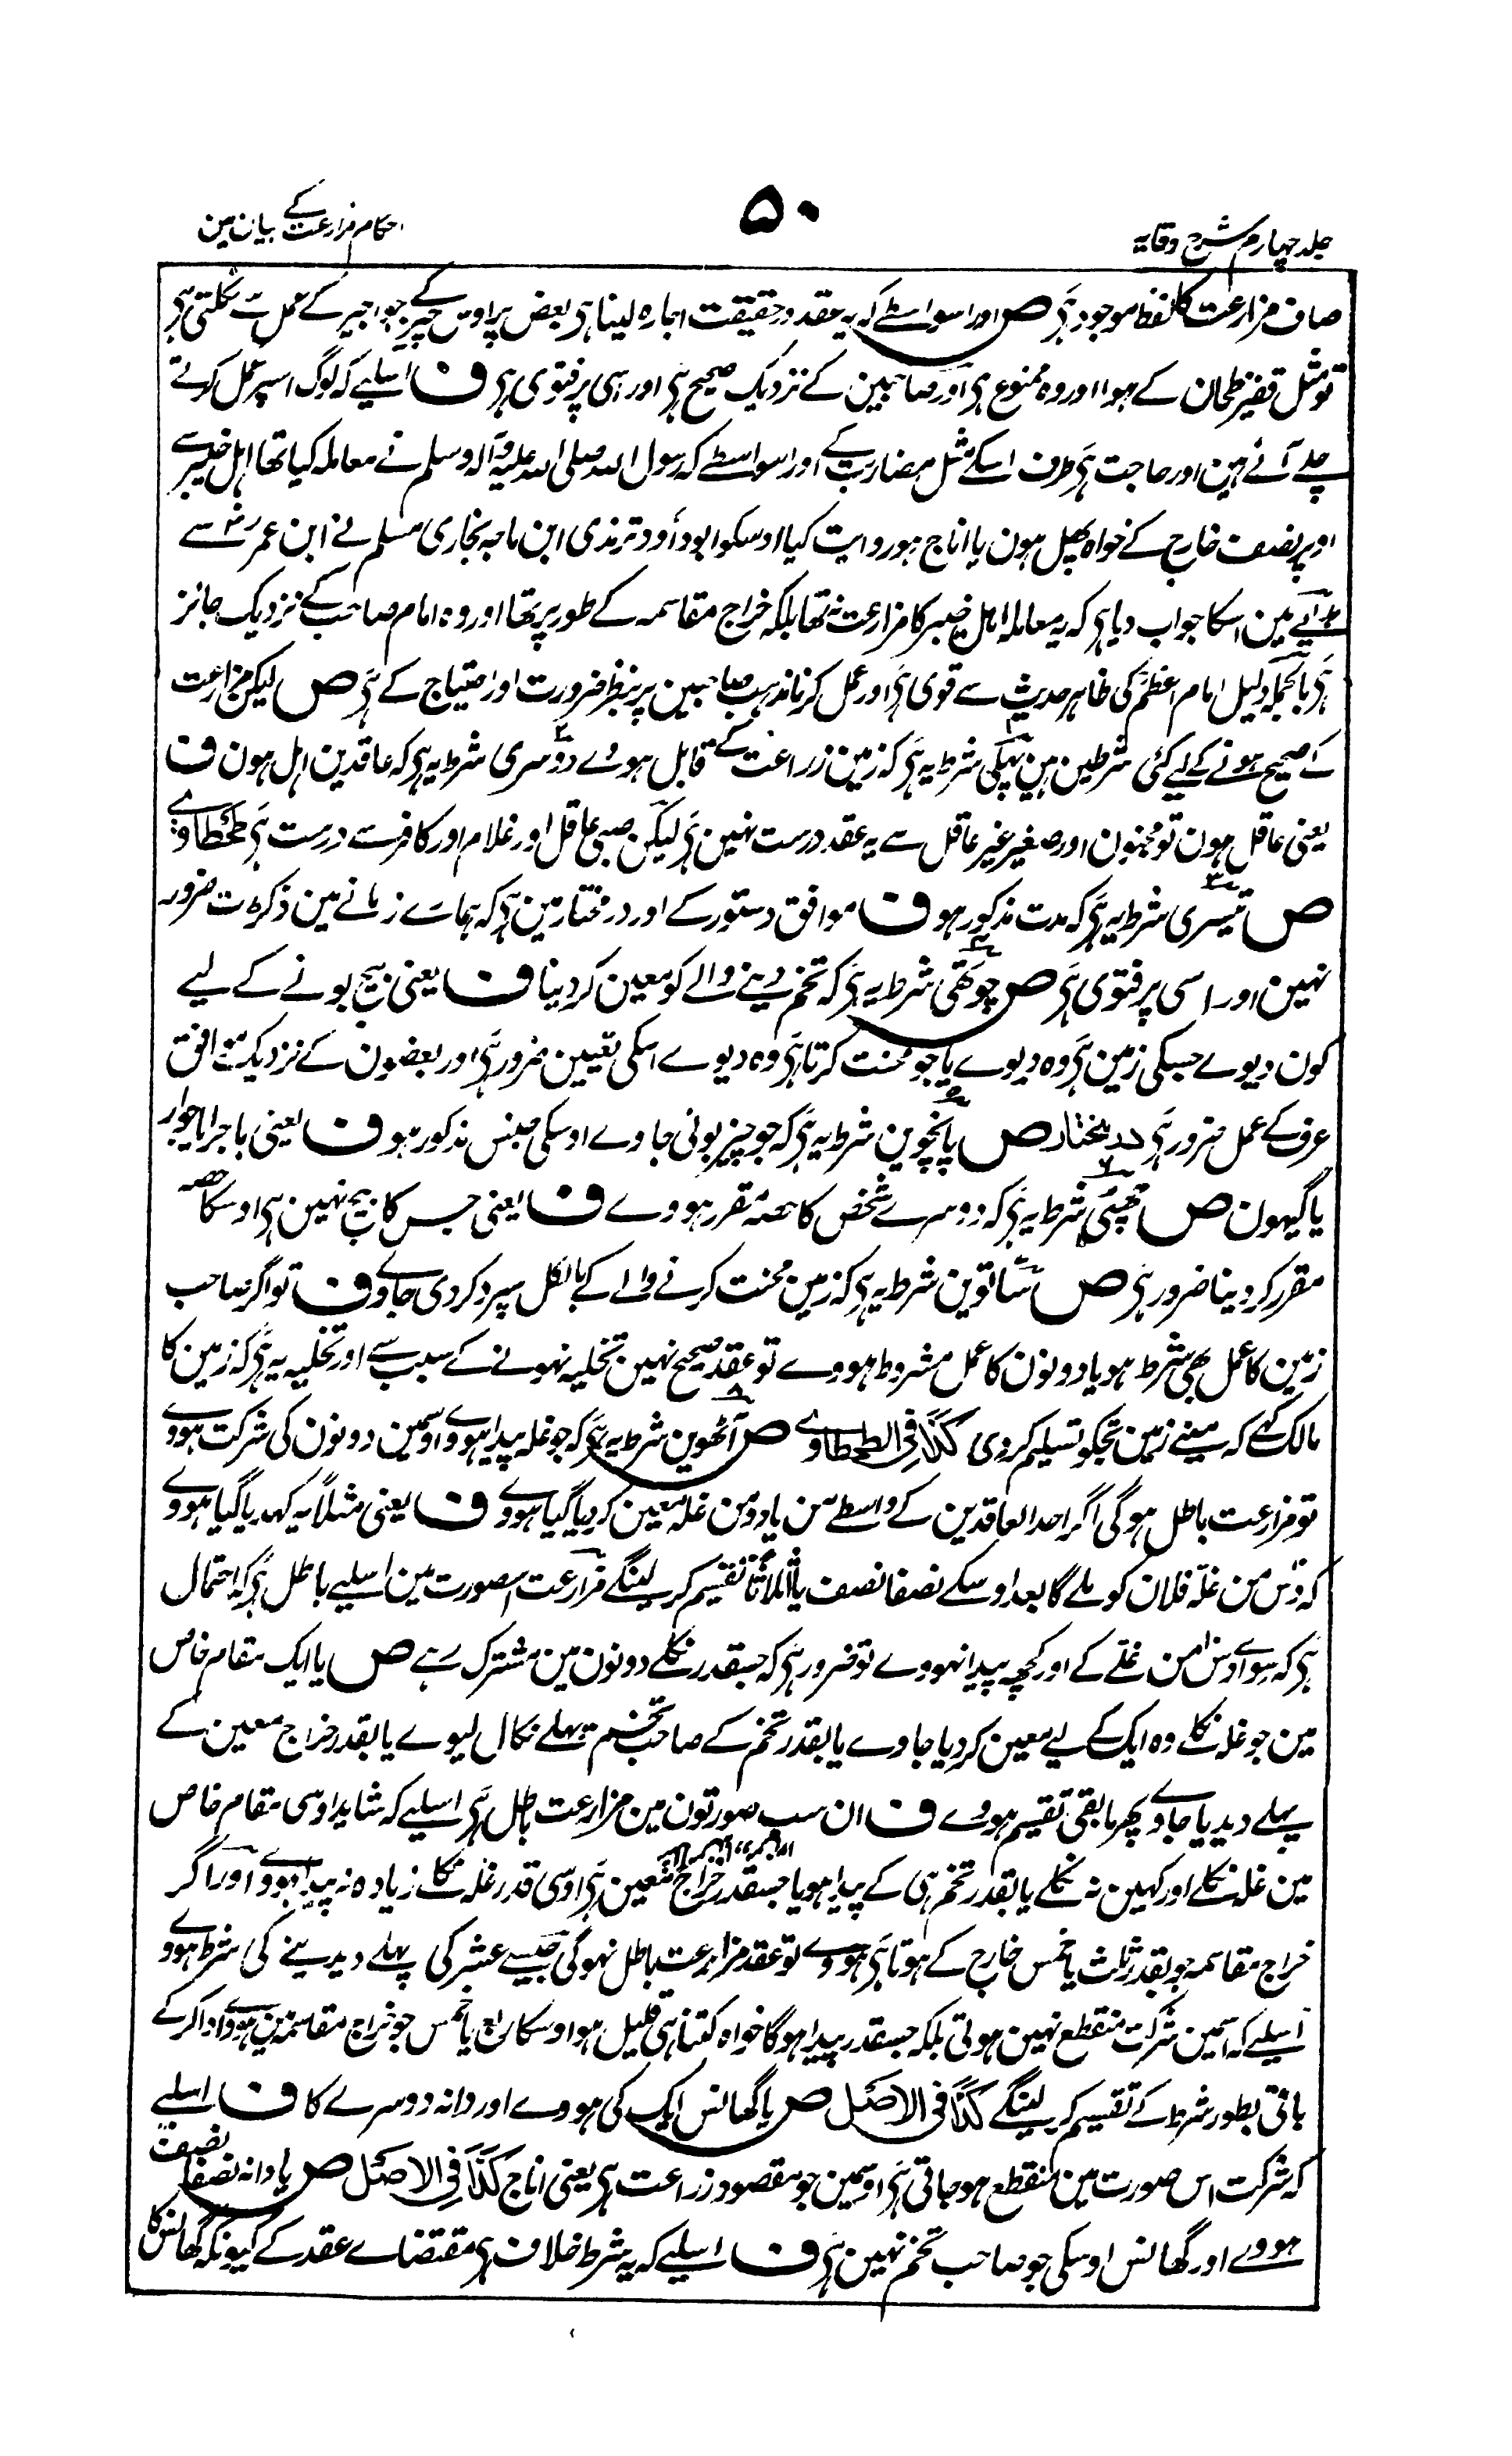 جلد چہارم شرح وقایہ
۵۰
احکام مزارعت کے بیان مین
صاف مزارعت کا لفظ موجود ہی ص اور اسواسطے کہ یہ عقد درحقیقت اجارہ لینا ہی بعض پر اوس چیز کے جو اجیر کے عمل سے نکلتی ہی
تو مثل قفیز طحان کے ہوا اور وہ ممنوع ہی اور صاحبین کے نزدیک صحیح ہی اور اسی پر فتوی ہی ف اسلیے کہ لوگ اسپر عمل کرتے
چلے آئے ہین اور حاجت ہی طرف اسکے مثل مضاربت کے اور اسواسطے کہ رسول اللہ صلی اللہ علیہ وآلہ وسلم نے معاملہ کیا تھا اہل خیبر سے
اوپر نصف خارج کے خواہ پھل ہون یا اناج ہو روایت کیا اوسکو ابو داود ترمذی ابن ماجہ بخاری مسلم نے ابن عمر رض سے
ہدایے مین اسکا جواب دیا ہی کہ یہ معاملہ اہل خیبر کا مزارعت نہ تھا بلکہ خراج مقاسمہ کے طور پر تھا اور وہ امام صاحب کے نزدیک جائز
ہی بالجملہ دلیل امام اعظم کی ظاہر حدیث سے قوی ہی اور عمل کرنا مذہب صاحبین پر بنظر ضرورت اور احتیاج کے ہی ص لیکن مزارعت
کے صحیح ہونے کے لیے کئی شرطین ہین پہلی شرط یہ ہی کہ زمین زراعت کے قابل ہووے دوسری شرط یہ ہی کہ عاقدین اہل ہون ف
یعنی عاقل ہون تو مجنون اور صغیر غیر عاقل سے یہ عقد درست نہین ہی لیکن صبی عاقل اور غلام اور کافر سے درست ہی طحطاوی
ص تیسری شرط یہ ہی کہ مدت مذکور ہو ف موافق دستور کے اور درمختار مین ہی کہ ہمارے زمانے مین ذکر مدت ضرور
نہین اور اسی پر فتوی ہی ص چوتھی شرط یہ ہی کہ تخم دینے والے کو معین کر دینا ف یعنی بیج بونے کے لیے
کون دیوے جسکی زمین ہی وہ دیوے یا جو محنت کرتا ہی وہ دیوے اسکی تعیین ضرور ہی اور بعضون کے نزدیک موافق
عرف کے عمل ضرور ہی درمختار ص پانچوین شرط یہ ہی کہ جو چیز بوئی جاوے اوسکی جنس مذکور ہو ف یعنی باجرا یا جوار
یا گیہون ص چھٹی شرط یہ ہی کہ دوسرے شخص کا حصہ مقرر ہووے ف یعنی جس کا بیج نہین ہی اوسکا حصہ
مقرر کر دینا ضرور ہی ص ساتوین شرط یہ ہی کہ زمین محنت کرنے والے کے بالکل سپرد کر دی جاوے ف تو اگر صاحب
زمین کا عمل بھی شرط ہو یا دونون کا عمل مشروط ہووے تو عقد صحیح نہین تخلیہ نہونے کے سبب سے اور تخلیہ یہ ہی کہ زمین کا
مالک کہے کہ مینے زمین تجکو تسلیم کر دی کذا فی الطحطاوی ص آٹھوین شرط یہ ہی کہ جو غلہ پیدا ہووے اوسمین دونون کی شرکت ہووے
تو مزارعت باطل ہوگی اگر احد العاقدین کے واسطے من یا دو من غلہ معین کر دیا گیا ہووے ف یعنی مثلاً یہ کہدیا گیا ہووے
کہ دس من غلہ فلان کو ملے گا بعد اوسکے نصفا نصف یا اثلاثا تقسیم کر لینگے مزارعت اسصورت مین اسلیے باطل ہی کہ احتمال
ہی کہ سواے دس من غلے کے اور کچھ پیدا نہووے تو ضرور ہی کہ جسقدر نکلے دونون مین مشترک رہے ص یا ایک مقام خاص
مین جو غلہ نکلے وہ ایک کے لیے معین کر دیا جاوے یا بقدر تخم کے صاحب تخم پہلے نکال لیوے یا بقدر خراج معین کے
پہلے دیدیا جاوے پھر مابقی تقسیم ہووے ف ان سب صورتون مین مزارعت باطل ہی اسلیے کہ شاید اوسی مقام خاص
مین غلہ نکلے اور کہین نہ نکلے یا بقدر تخم ہی کے پیدا ہو یا جسقدر خراج معین ہی اوسی قدر غلہ نکلے زیادہ نہ پیدا ہووے اور اگر
خراج مقاسمہ جو بقدر ثلث یا خمس خارج کے ہوتا ہی ہووے تو عقد مزارعت باطل نہوگی جیسے عشر کی پہلے دیدینے کی شرط ہووے
اسلیے کہ اسمین شرکت منقطع نہین ہوتی بلکہ جسقدر پیدا ہوگا خواہ کتنا ہی قلیل ہو اوسکا ربع یا خمس جو خراج مقاسمہ مین ہووے ادا کر کے
باقی بطور شرط کے تقسیم کر لینگے کذا فی الاصل ص یا گھانس ایک کی ہووے اور دانہ دوسرے کا ف اسلیے
کہ شرکت اس صورت مین منقطع ہو جاتی ہی اوسمین جو مقصود زراعت ہی یعنی اناج کذا فی الاصل ص یا دانہ نصفا نصف
ہووے اور گھانس اوسکی جو صاحب تخم نہین ہی ف اسلیے کہ یہ شرط خلاف ہی مقتضاے عقد کے کیونکہ گھانس کا